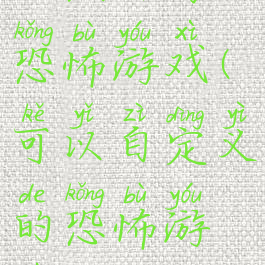 kǒng bù yóu xì
恐怖游戏(
kě yǐ zì dìng yì
可以自定义
de kǒng bù yóu
的恐怖游